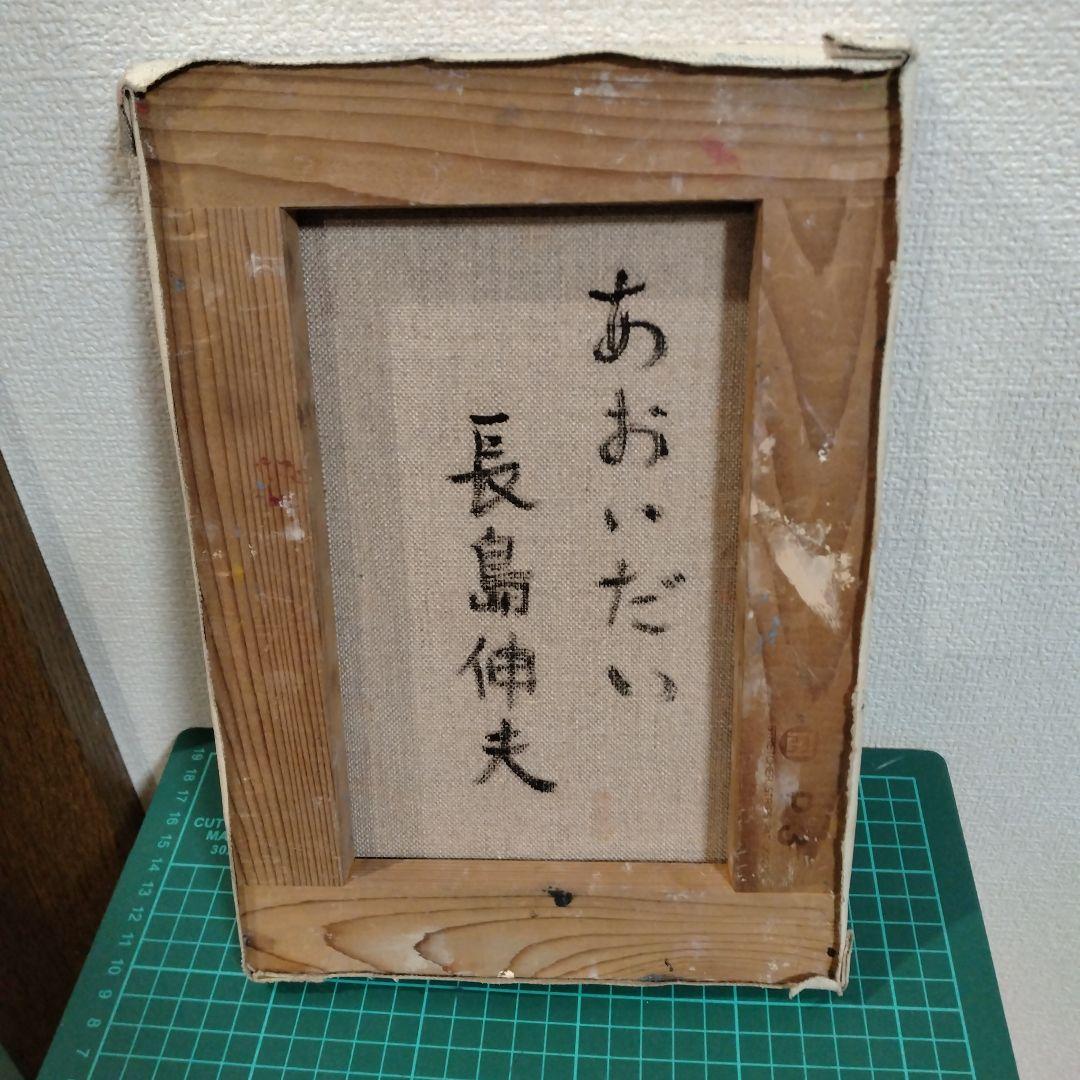 あおいだい
長島伸夫
D3
19
18
17
16
15
14
13
12
11
10
9
8
7